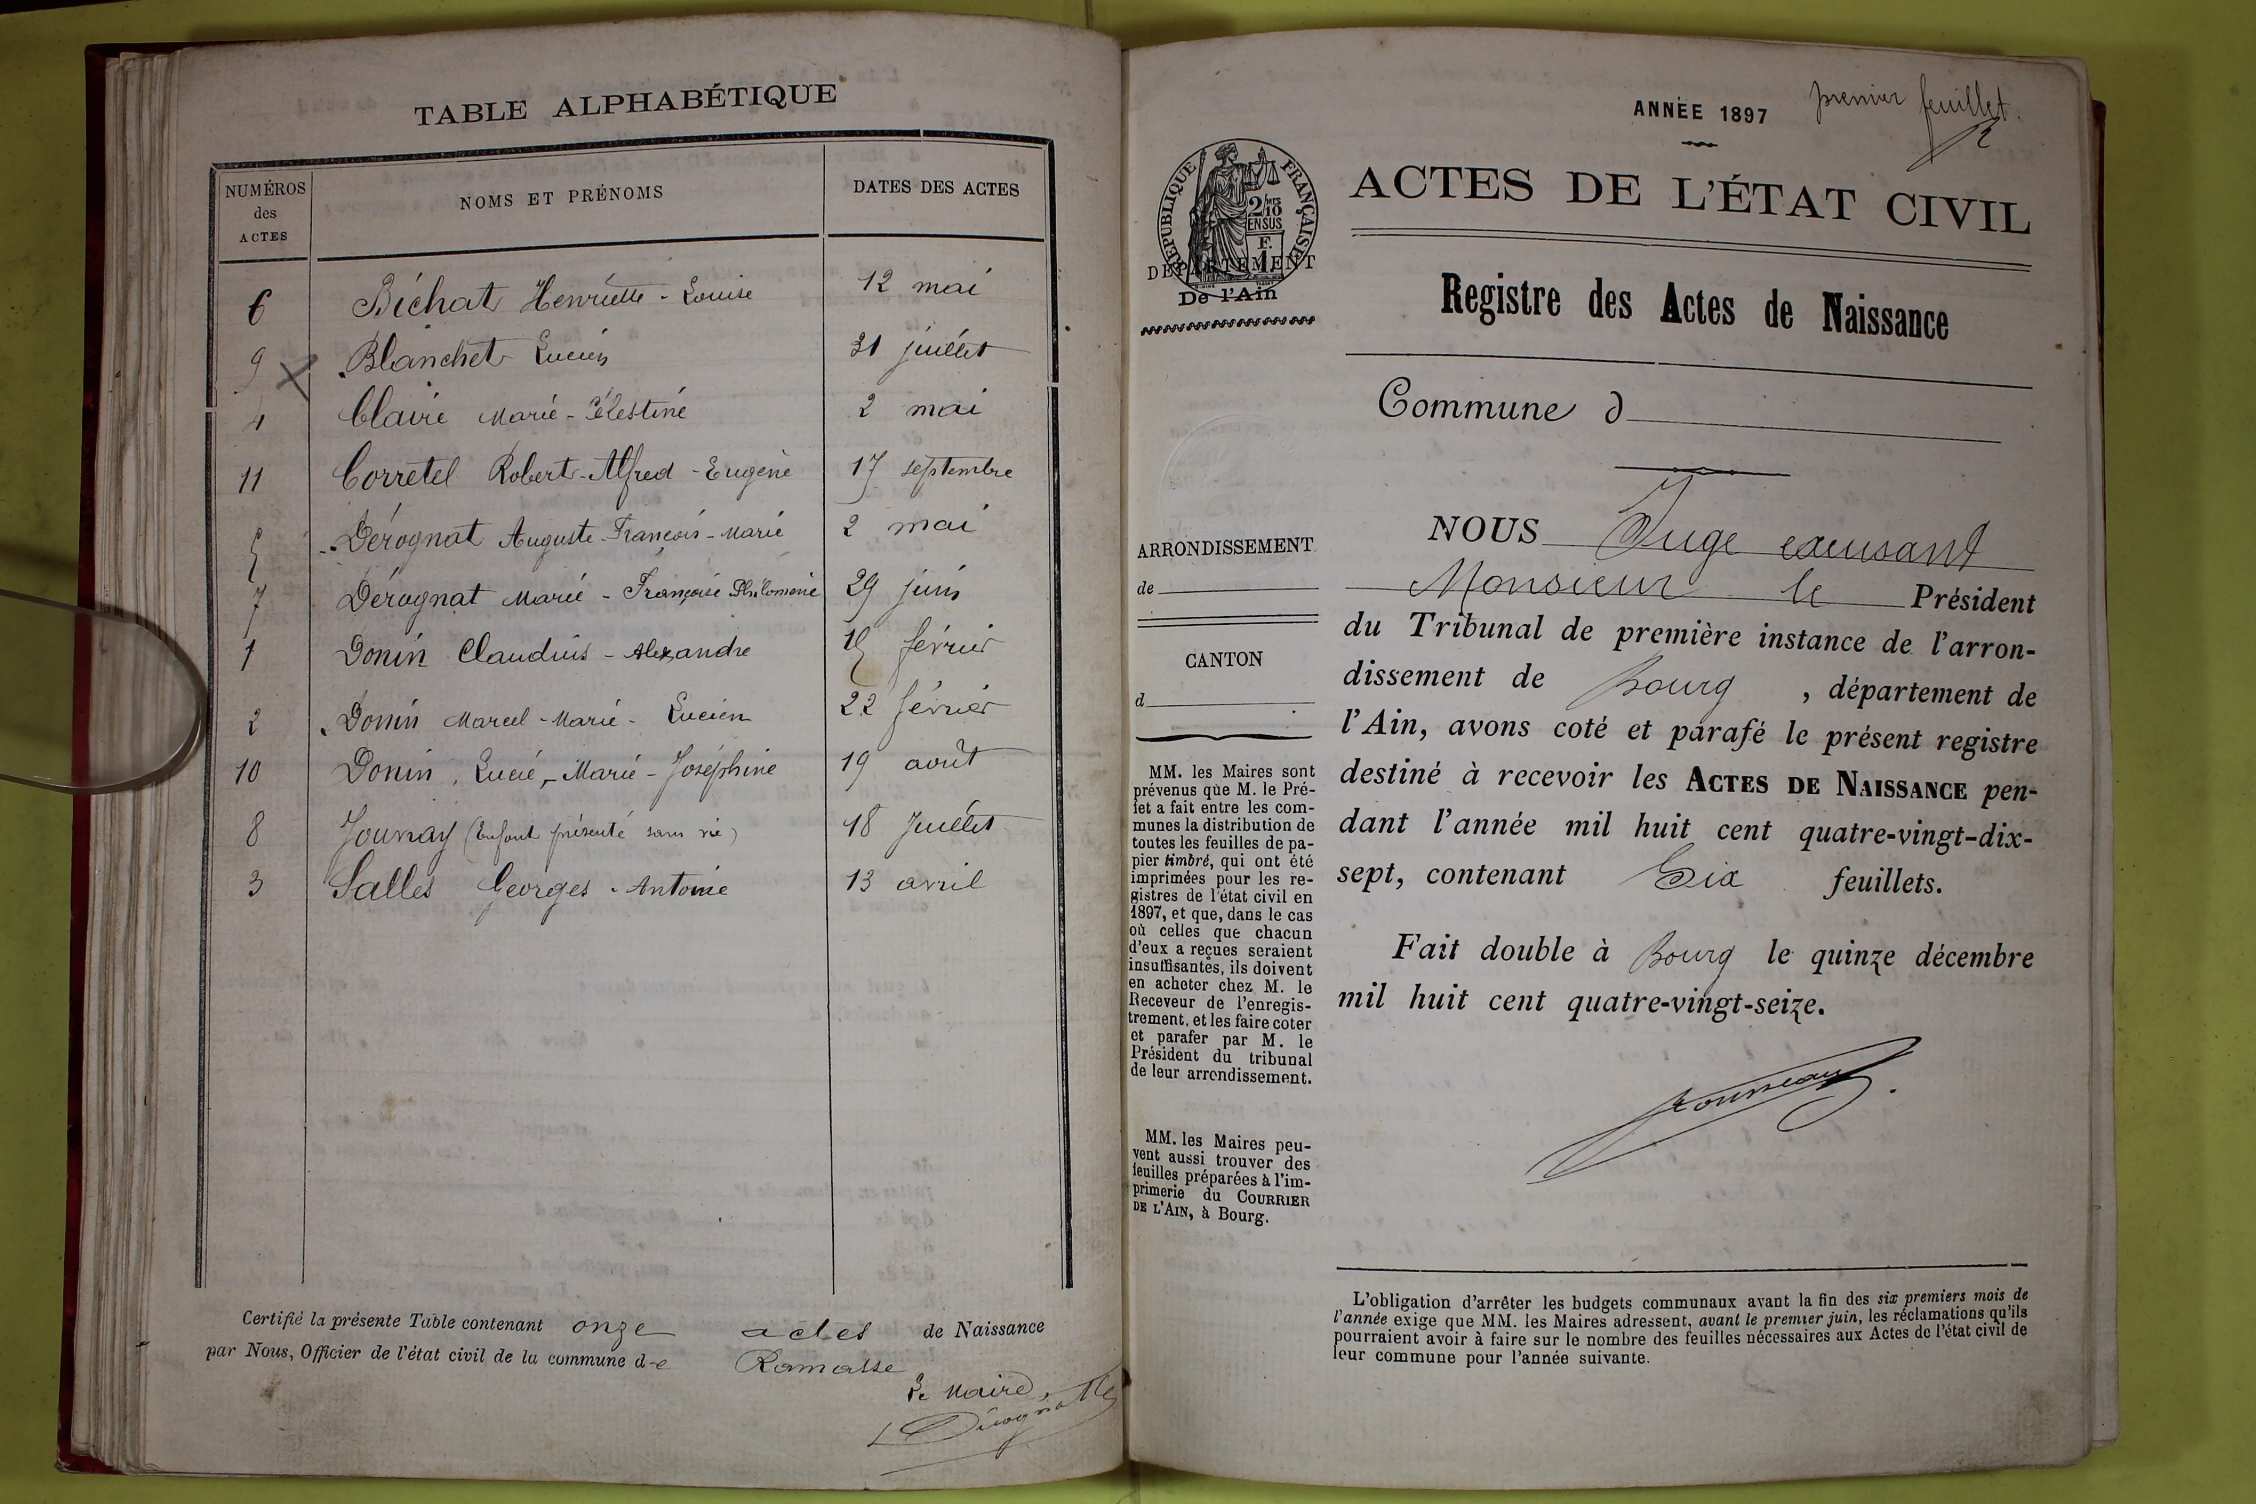 TABLE ALPHABÉTIQUE
NUMÉROS des ACTES NOMS ET PRÉNOMS DATES DES ACTES
6 Bichat Henriette - Louise 12 mai
9 Blanchet Lucien 31 juillet
4 Claire Marie - Célestine 2 mai
11 Corretel Robert - Alfred - Eugène 17 septembre
5 Dérognat Auguste - François - Marie 2 mai
7 Dérognat Marie - Françoise Philomène 29 juin
1 Donin Claudius - Alexandre février
2 Donin Marcel - Marie - Lucien 22 février
10 Donin, Lucie, Marie - Joséphine 19 août
8 Jounay (Enfant présenté sans vie) 18 Juillet
3 Salles Georges - Antoine 13 avril
Certifié la présente Table contenant onze actes de Naissance
par Nous, Officier de l'état civil de la commune d-e Ramasse
Le Maire,
Dérognat
ANNÉE 1897 premier feuillet.
RÉPUBLIQUE FRANÇAISE
2/10 EN SUS
F.
1
DÉPARTEMENT
De l'Ain
ACTES DE L'ÉTAT CIVIL
Registre des Actes de Naissance
Commune d
ARRONDISSEMENT
de
CANTON
d
MM. les Maires sont
prévenus que M. le Pré-
fet a fait entre les com-
munes la distribution de
toutes les feuilles de pa-
pier timbré, qui ont été
imprimées pour les re-
gistres de l'état civil en
1897, et que, dans le cas
où celles que chacun
d'eux a reçues seraient
insuffisantes, ils doivent
en acheter chez M. le
Receveur de l'enregis-
trement, et les faire coter
et parafer par M. le
Président du tribunal
de leur arrondissement.
MM. les Maires peu-
vent aussi trouver des
feuilles préparées à l'im-
primerie du COURRIER
DE L'AIN, à Bourg.
NOUS Juge
Monsieur le Président
du Tribunal de première instance de l'arron-
dissement de Bourg, département de
l'Ain, avons coté et parafé le présent registre
destiné à recevoir les ACTES DE NAISSANCE pen-
dant l'année mil huit cent quatre-vingt-dix-
sept, contenant Six feuillets.
Fait double à Bourg le quinze décembre
mil huit cent quatre-vingt-seize.
L'obligation d'arrêter les budgets communaux avant la fin des six premiers mois de
l'année exige que MM. les Maires adressent, avant le premier juin, les réclamations qu'ils
pourraient avoir à faire sur le nombre des feuilles nécessaires aux Actes de l'état civil de
leur commune pour l'année suivante.